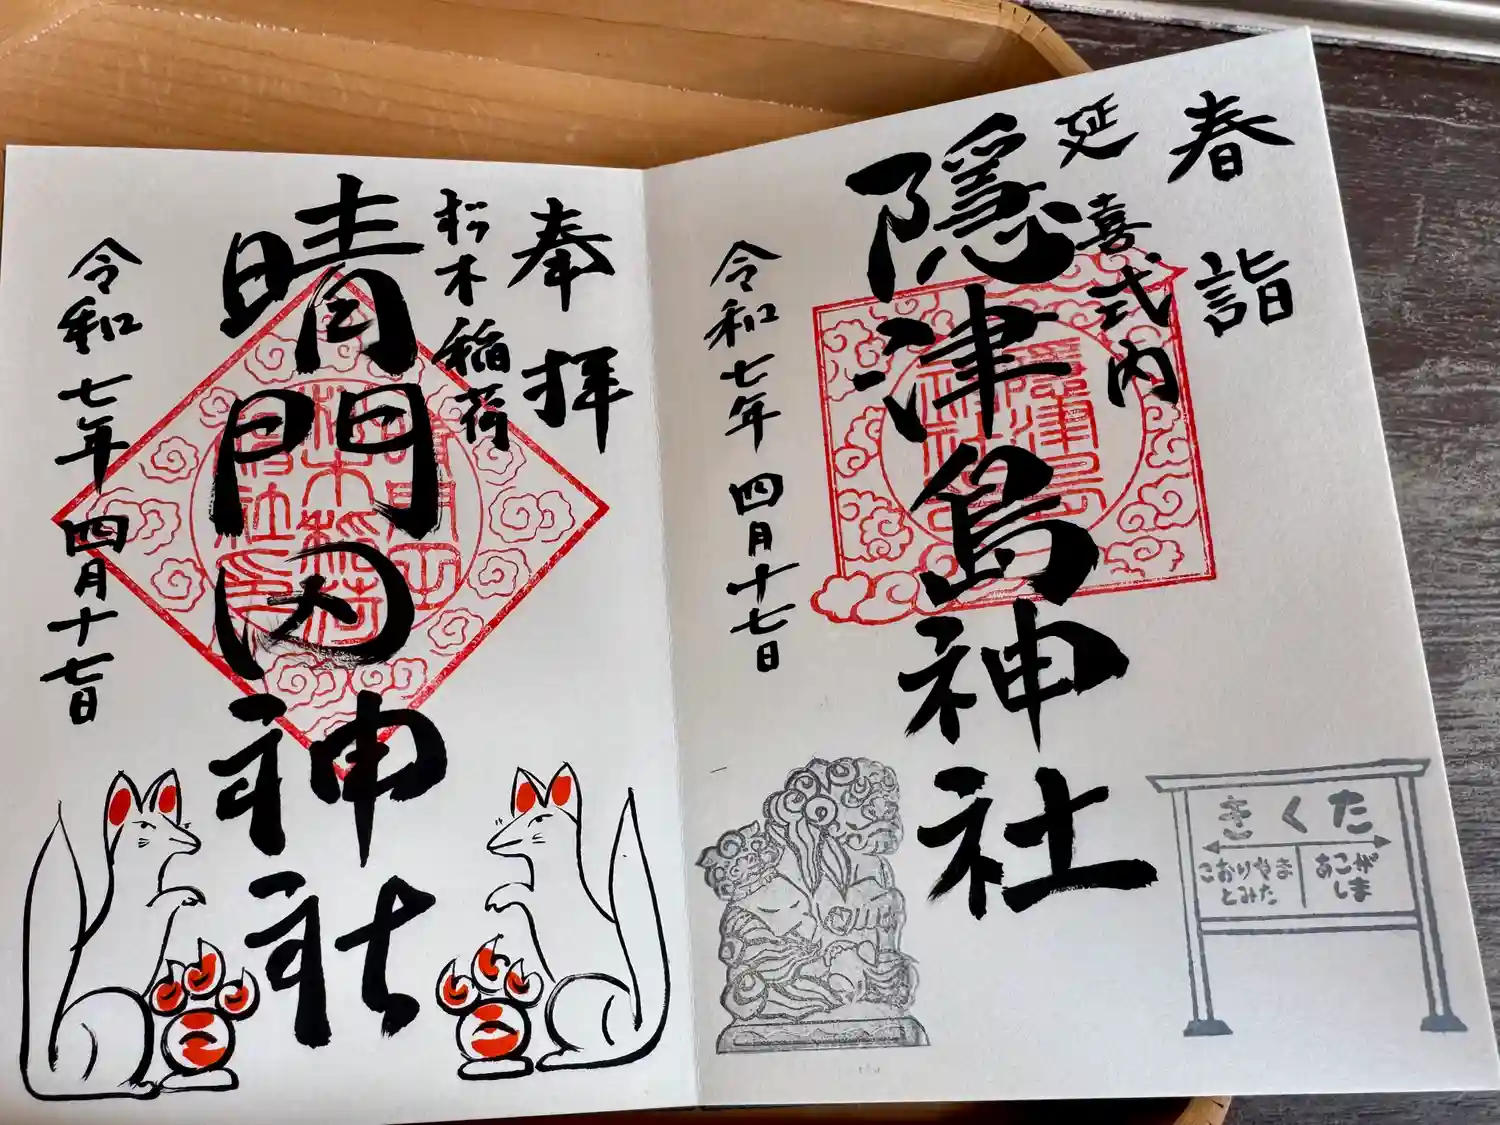 春詣
延喜式内
隠津島神社
令和七年四月十七日
きくた
こおりやま
とみた
あこがしま
奉拝
松木稲荷
晴門田神社
令和七年四月十七日